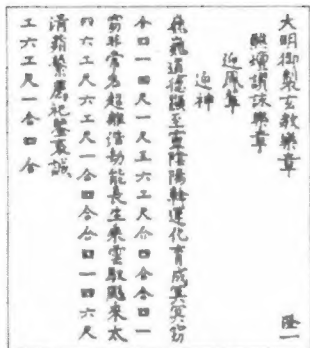 大明御製玄教樂章 隆一
醮壇讚詠樂章
迎鳳輦
迎神
巍巍道德尊至玄陰陽斡運化育成冥冥窈
合四一四一尺工六工尺合四合合四一
窈非常名超離浩劫能長生乘雲馭飈來太
四六工尺六工尺一合四合合四一四六尺
清蘋蘩薦祀鑒衷誠
工六工尺一合四合